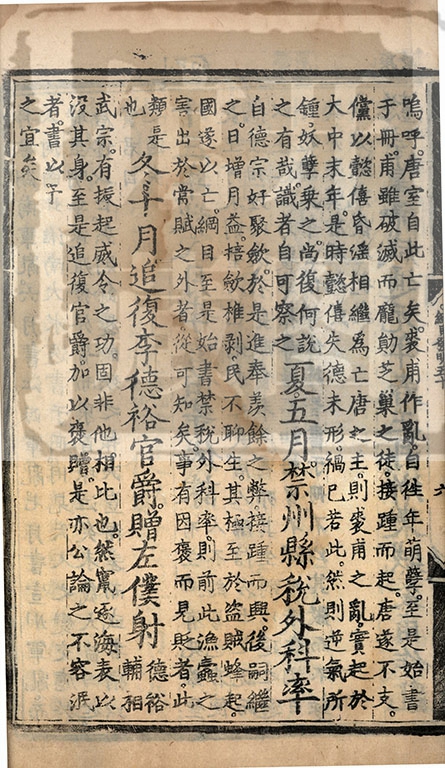 嗚呼唐室自此亡矣裘甫作亂自往年萌孽至是始書
于冊甫雖破滅而龐勛芝巢之徒接踵而起唐遂不支
黨以懿僖昏淫相繼為亡唐之主則裘甫之亂實起於
大中末年是時懿僖失德未形禍已若此然則逆氣所
鍾妖孽乗之尚復何說
之有哉識者自可察之夏五月禁州縣稅外科率
自德宗好聚斂於是進奉羨餘之弊接踵而興後嗣繼
之日増月益掊斂椎剥民不聊生其極至於盗賊蜂起
國遂以亡綱目至是始書禁稅外科率則前此漁蠧之
害出於常賦之外者從可知矣事有因褒而見貶者此
類是
也冬十月追復李德裕官爵贈左僕射德裕
輔相
武宗有振起威令之功固非他相比也然竄逐海表以
沒其身至是追復官爵加以褒贈是亦公論之不容泯
者書以予
之宜矣
六